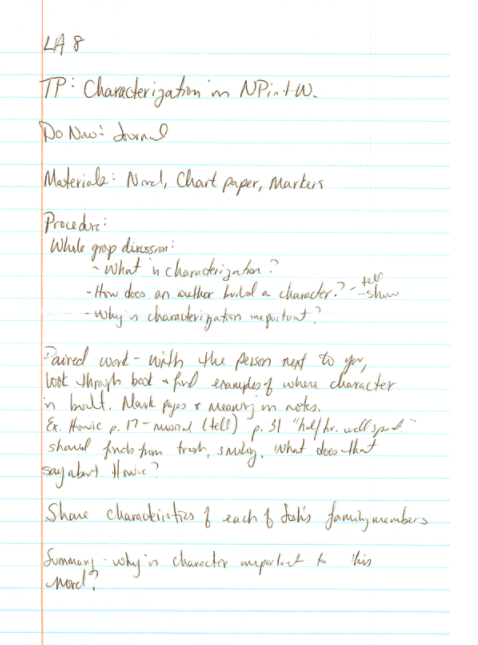 LA 8
TP: Characterization in NPintW.
Do Now: Journal
Materials: Novel, Chart paper, Markers
Procedure:
Whole group discussion:
- What is characterization?
- How does an author build a character? - tell
- show
- Why is characterization important?
Paired work - with the person next to you,
look through book + find examples of where character
is built. Mark pages + meaning in notes.
Ex. Howie p. 17 - musical (tell) p. 31 "half hr. well spent"
should from trash, . What does that
say about Howie?
Share characteristics of each of Josh's family members
Summary - why is character important to this
novel?